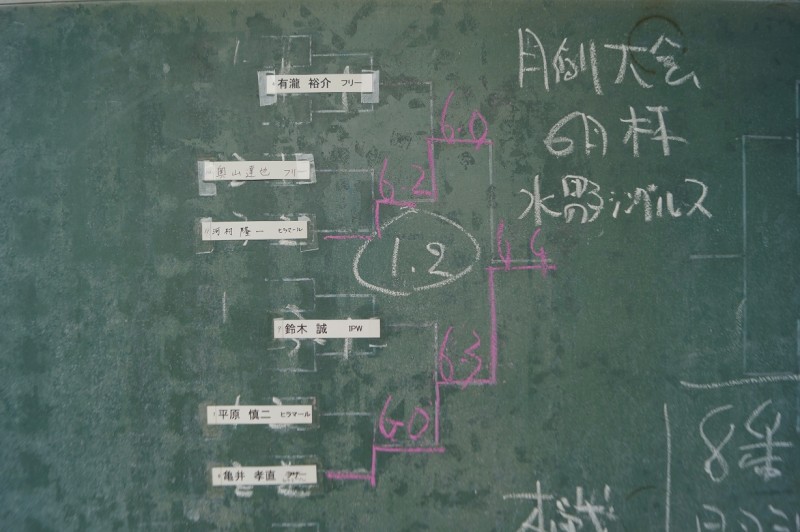 月例大会
6月杯
水曜シングルス
有瀧 裕介 フリー
6.0
奥山達也 フリー
6.2
河村 隆一 ヒラマール
1.2
6 4
鈴木 誠 IPW
6.3
平原 慎二 ヒラマール
6.0
亀井 孝直 アザー
8番